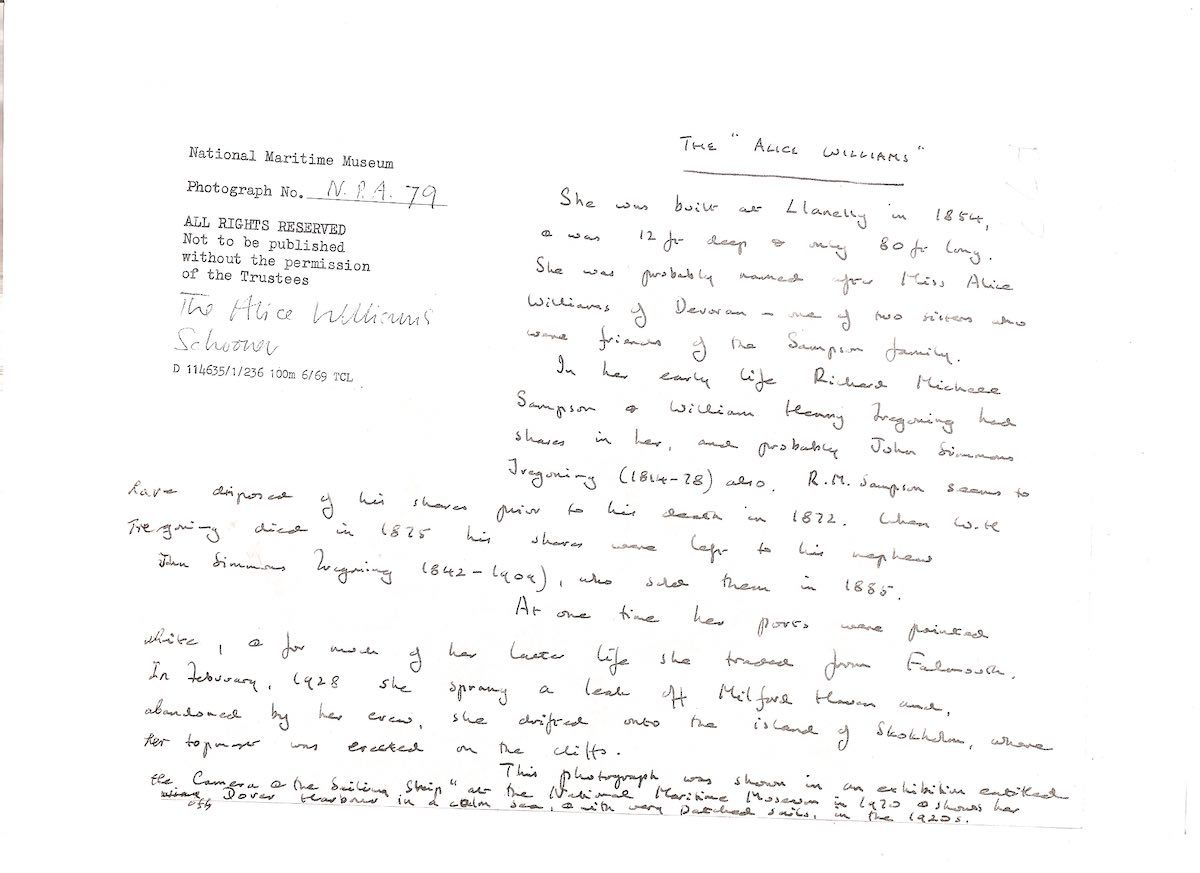 THE "ALICE WILLIAMS"
National Maritime Museum
Photograph No. N.P.A. 79
ALL RIGHTS RESERVED
Not to be published
without the permission
of the Trustees
The Alice Williams
Schooner
D 114635/1/236 100m 6/69 TCL
She was built at Llanelly in 1854,
& was 12 ft deep & only 80 ft long.
She was probably named after Miss Alice
Williams of Devoran – one of two sisters who
were friends of the Sampson family.
In her early life Richard Michell
Sampson & William Henry Tregoning had
shares in her, and probably John Simmons
Tregoning (1814-78) also. R.M. Sampson seems to
have disposed of his shares prior to his death in 1872. When W.H
Tregoning died in 1875 his shares were left to his nephew
John Simmons Tregoning 1842-1909), who sold them in 1885.
At one time her ports were painted
white, & for much of her later life she traded from Falmouth.
In February, 1928 she sprang a leak off Milford Haven and,
abandoned by her crew, she drifted onto the island of Skokholm, where
her topmast was erected on the cliffs.
This photograph was shown in an exhibition entitled
the Camera & the Sailing Ship" at the National Maritime Museum in 1970 & shows her
off Dover Harbour in a calm sea, & with very patched sails, in the 1920s.